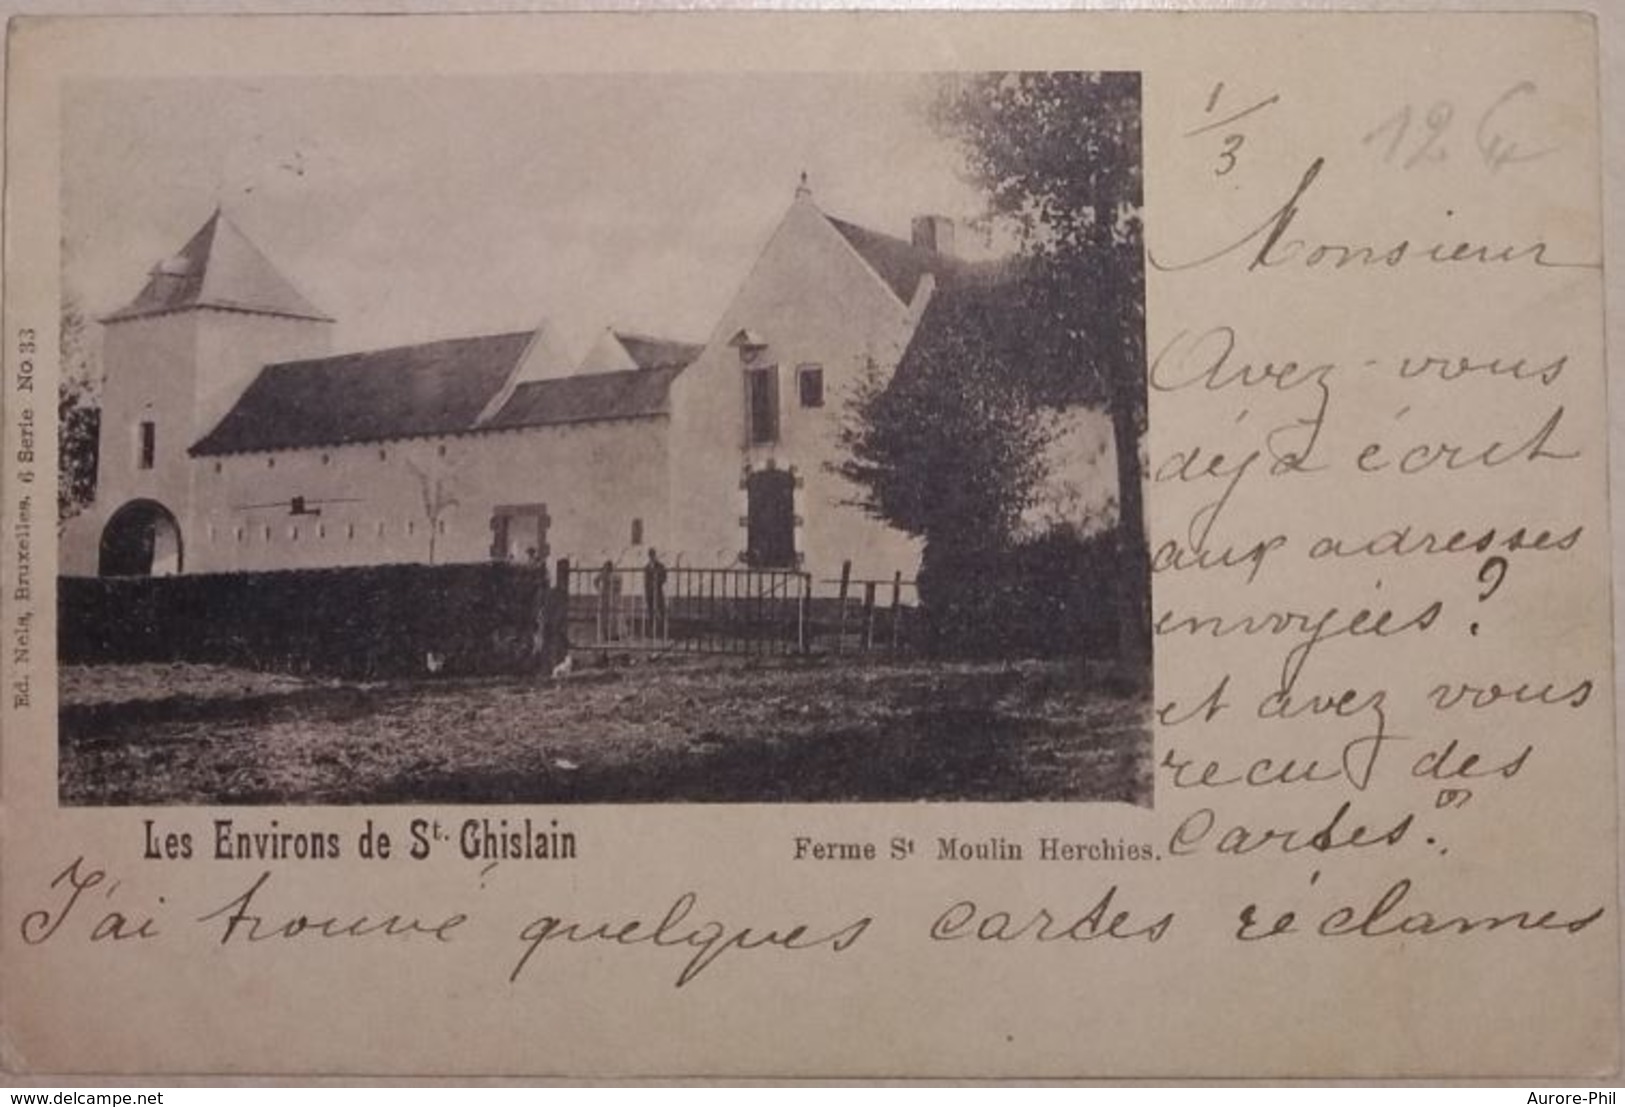 1/3
12
Monsieur
Avez-vous
déjà écrit
aux adresses
envoyées ?
et avez vous
recu des
Cartes ?
J'ai trouvé quelques cartes réclames
Les Environs de St. Ghislain
Ferme St Moulin Herchies.
Ed. Nels, Bruxelles. 6 Serie No. 33
www.delcampe.net
Aurore-Phil